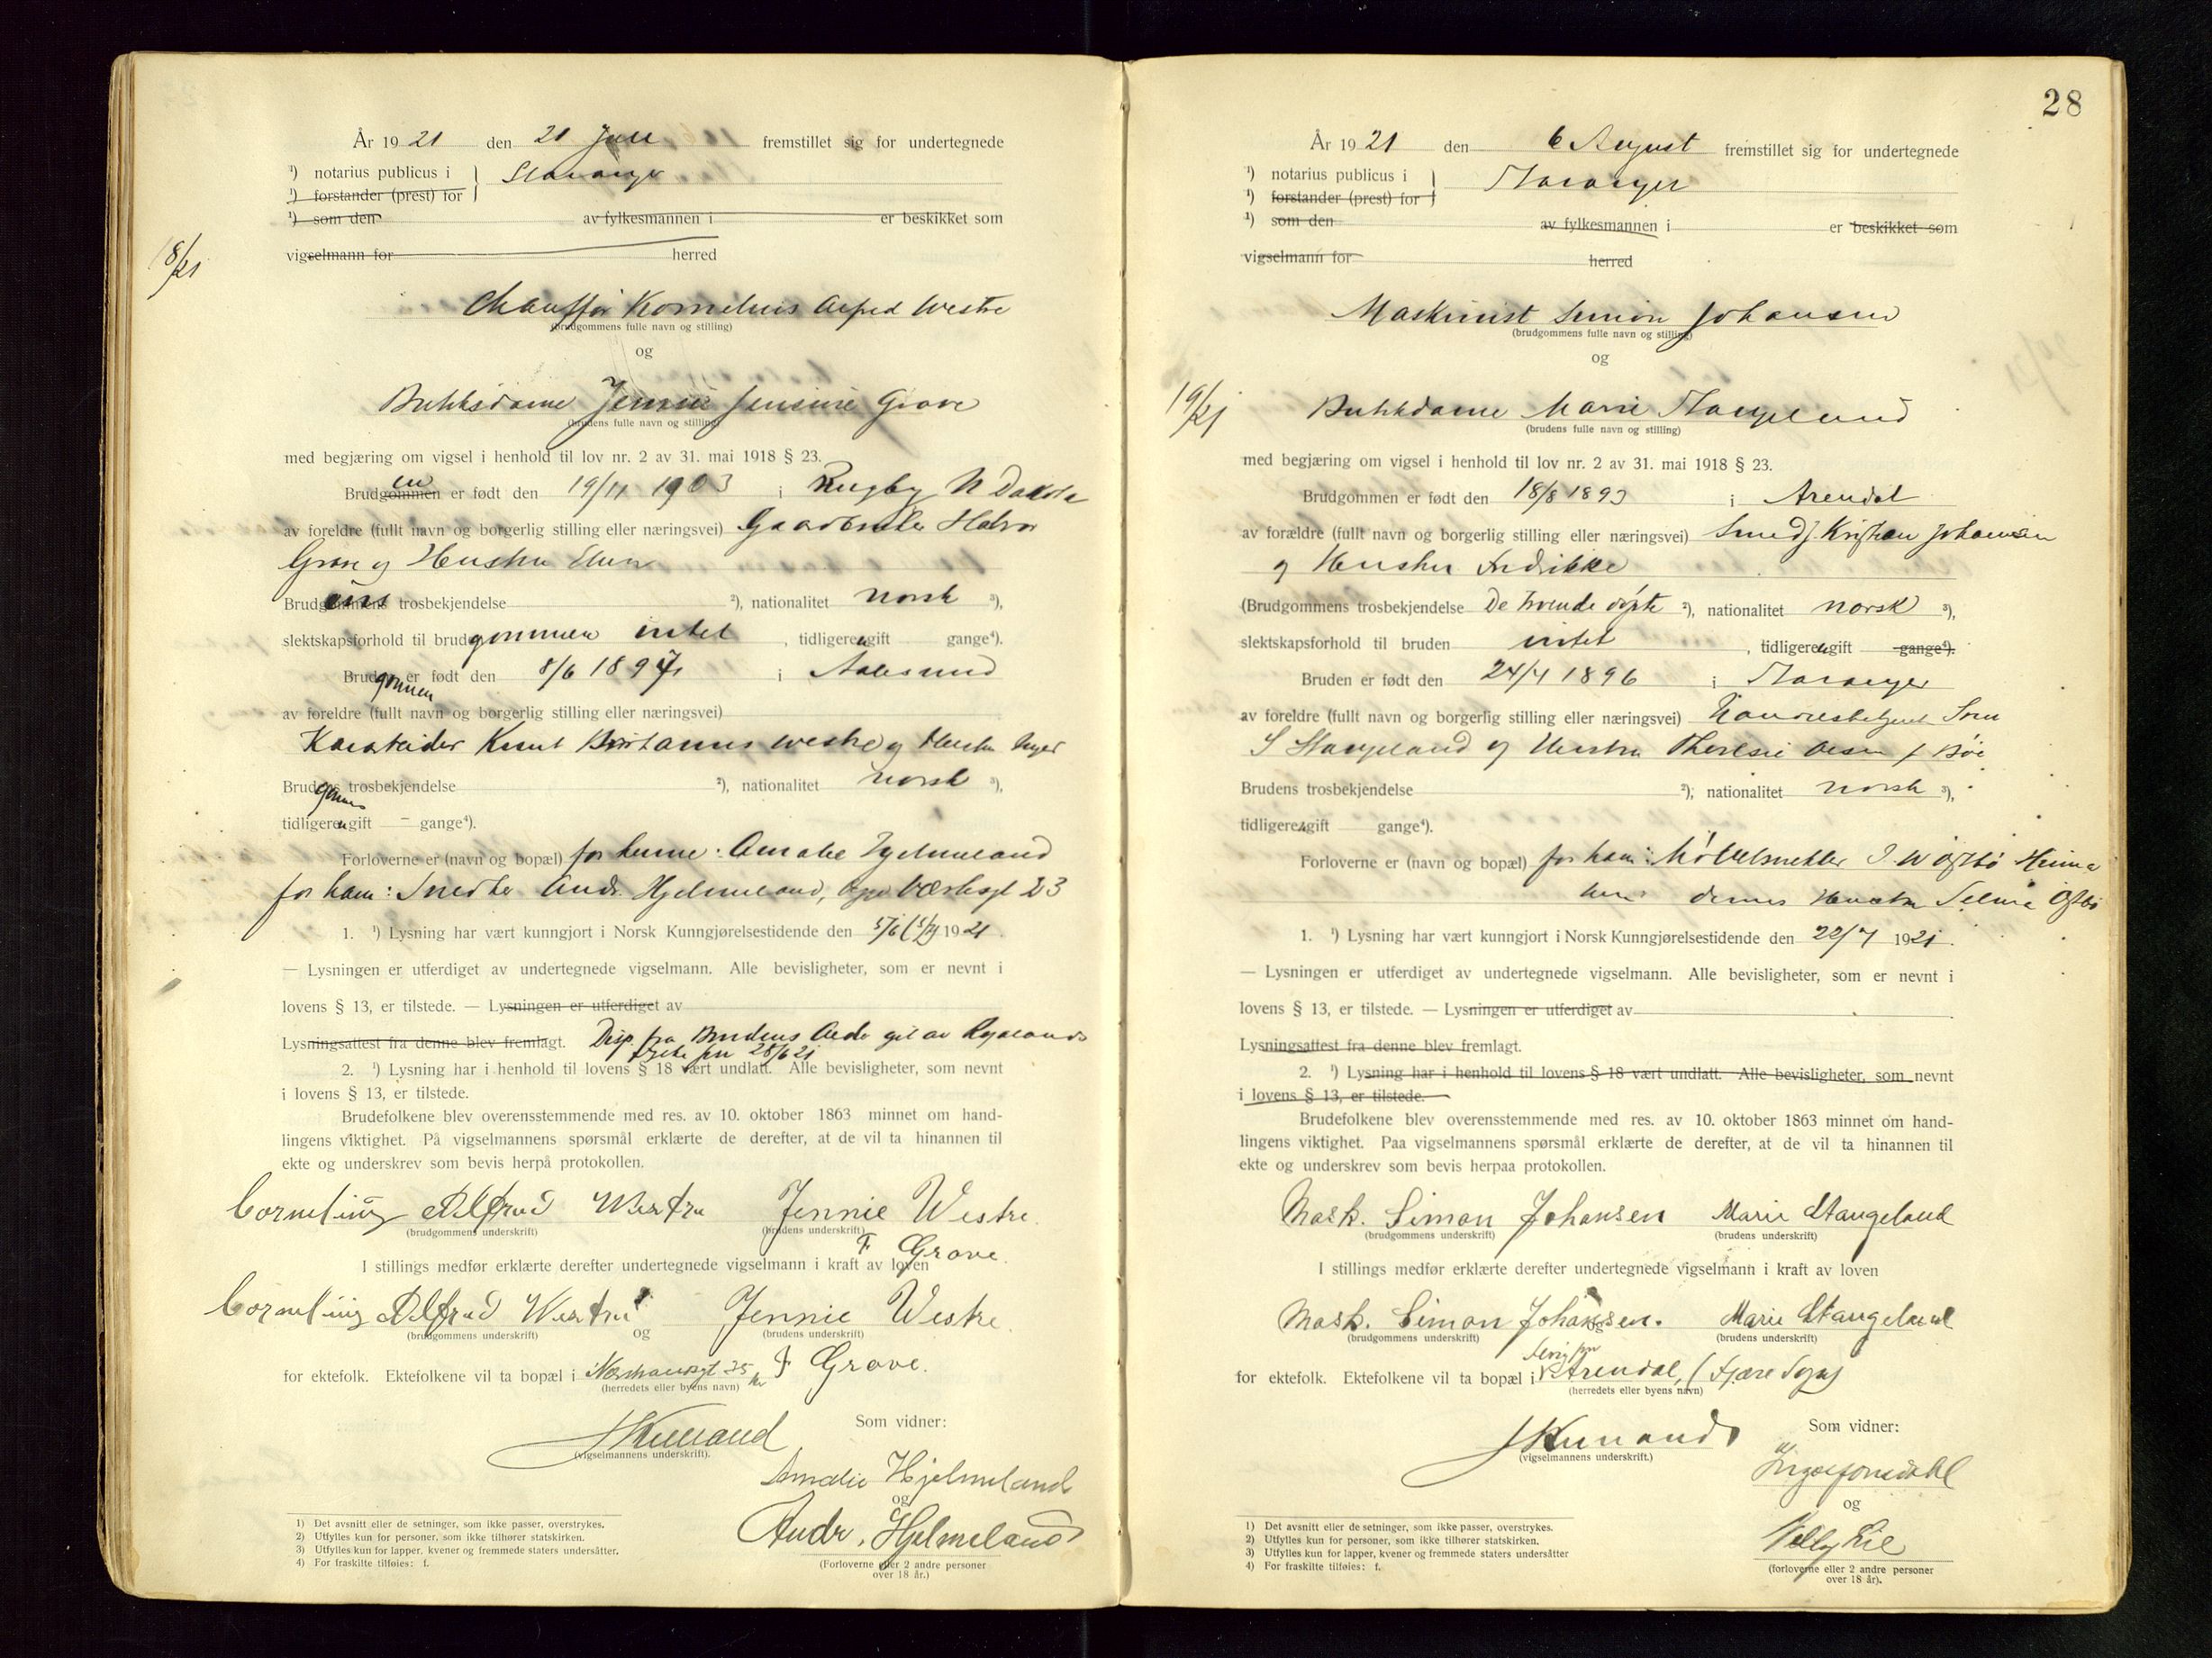 År 1921 den 21 Juli fremstillet sig for undertegnede
¹) notarius publicus i } Stavanger
¹) forstander (prest) for
¹) som den av fylkesmannen i er beskikket som
18/21
vigselmann for herred
Chauffør Kornelius Alfred Westre
(brudgommens fulle navn og stilling)
og
Butiksdame Jennie Jensine Grove
(brudens fulle navn og stilling)
med begjæring om vigsel i henhold til lov nr. 2 av 31. mai 1918 § 23.
Brudgommen en er født den 19/11 1903 i Rugby N Dakota
av foreldre (fullt navn og borgerlig stilling eller næringsvei) Gaardbruker Halvor
Grove og Hustru
Brudgommens ens trosbekjendelse ²), nationalitet norsk ³),
slektskapsforhold til brudgommen intet , tidligere u gift gange⁴).
Brudgommen er født den 8/6 1897 i Aalesund
av foreldre (fullt navn og borgerlig stilling eller næringsvei)
Knut Westre og Hustru Inger
Brudgoms trosbekjendelse ²), nationalitet norsk ³),
tidligere u gift – gange⁴).
Forloverne er (navn og bopæl) for henne: Amalie Hjelmeland
for ham: Snedker Andr. Hjelmeland, 23
1. ¹) Lysning har vært kunngjort i Norsk Kunngjørelsestidende den 5/6 1921.
— Lysningen er utferdiget av undertegnede vigselmann. Alle bevisligheter, som er nevnt i
lovens § 13, er tilstede. — Lysningen er utferdiget av
Lysningsattest fra denne blev fremlagt. Disp. fra Brudens Alder git av Rogalands
fylke 28/6 21
2. ¹) Lysning har i henhold til lovens § 18 vært undlatt. Alle bevisligheter, som nevnt
i lovens § 13, er tilstede.
Brudefolkene blev overensstemmende med res. av 10. oktober 1863 minnet om hand-
lingens viktighet. På vigselmannens spørsmål erklærte de derefter, at de vil ta hinannen til
ekte og underskrev som bevis herpå protokollen.
Cornelius Alfred Westre Jennie Westre.
(brudgommens underskrift) (brudens underskrift)
F. Grove.
I stillings medfør erklærte derefter undertegnede vigselmann i kraft av loven
Cornelius Alfred Westre Jennie Westre.
(brudgommens underskrift) og (brudens underskrift)
for ektefolk. Ektefolkene vil ta bopæl i 25 F Grove.
(herredets eller byens navn)
Som vidner:
(vigselmannens underskrift).
Amalie Hjelmeland
og
Andr. Hjelmeland
(Forloverne eller 2 andre personer
over 18 år.)
1) Det avsnitt eller de setninger, som ikke passer, overstrykes.
2) Utfylles kun for personer, som ikke tilhører statskirken.
3) Utfylles kun for lapper, kvener og fremmede staters undersåtter.
4) For fraskilte tilføies: f.
28
År 1921 den 6 August fremstillet sig for undertegnede
¹) notarius publicus i } Stavanger
¹) forstander (prest) for
¹) som den av fylkesmannen i er beskikket som
vigselmann for herred
Maskinist Simon Johansen
(brudgommens fulle navn og stilling)
og
19/21
Butikkdame Marie Stangeland
(brudens fulle navn og stilling)
med begjæring om vigsel i henhold til lov nr. 2 av 31. mai 1918 § 23.
Brudgommen er født den 18/8 1893 i Arendal
av forældre (fullt navn og borgerlig stilling eller næringsvei) Smed J. Kristian Johansen
og Hustru Fredrikke
(Brudgommens trosbekjendelse De troende døpte ²), nationalitet norsk ³),
slektskapsforhold til bruden intet , tidligere u gift gange⁴).
Bruden er født den 24/4 1896 i Stavanger
av foreldre (fullt navn og borgerlig stilling eller næringsvei) Handelsbetjent
S Stangeland og Hustru Theresie Olsen f Bøe
Brudens trosbekjendelse ²); nationalitet norsk ³),
tidligere u gift gange⁴).
Forloverne er (navn og bopæl) for ham: Østbø
dennes Hustru Selma Østbø
1. ¹) Lysning har vært kunngjort i Norsk Kunngjørelsestidende den 22/7 1921.
— Lysningen er utferdiget av undertegnede vigselmann. Alle bevisligheter, som er nevnt i
lovens § 13, er tilstede. — Lysningen er utferdiget av
Lysningsattest fra denne blev fremlagt.
2. ¹) Lysning har i henhold til lovens § 18 vært undlatt. Alle bevisligheter, som nevnt
i lovens § 13, er tilstede.
Brudefolkene blev overensstemmende med res. av 10. oktober 1863 minnet om hand-
lingens viktighet. Paa vigselmannens spørsmål erklærte de derefter, at de vil ta hinannen til
ekte og underskrev som bevis herpaa protokollen.
Mask. Simon Johansen Marie Stangeland
(brudgommens underskrift) (brudens underskrift)
I stillings medfør erklærte derefter undertegnede vigselmann i kraft av loven
Mask. Simon Johansen. Marie Stangeland
(brudgommens underskrift) og (brudens underskrift)
for ektefolk. Ektefolkene vil ta bopæl i Arendal, (Fjære Sogn)
(herredets eller byens navn)
Som vidner:
(vigselmannens underskrift.)
og
(forloverne eller 2 andre personer
over 18 år).
1) Det avsnitt eller de setninger, som ikke passer, overstrykes.
2) Utfylles kun for personer, som ikke tilhører statskirken.
3) Utfylles kun for lapper, kvener og fremmede staters undersåtter
4) For fraskilte tilføies: f.